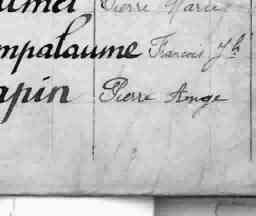 Pierre Marie
mpalaume François Jh
apin Pierre Ange